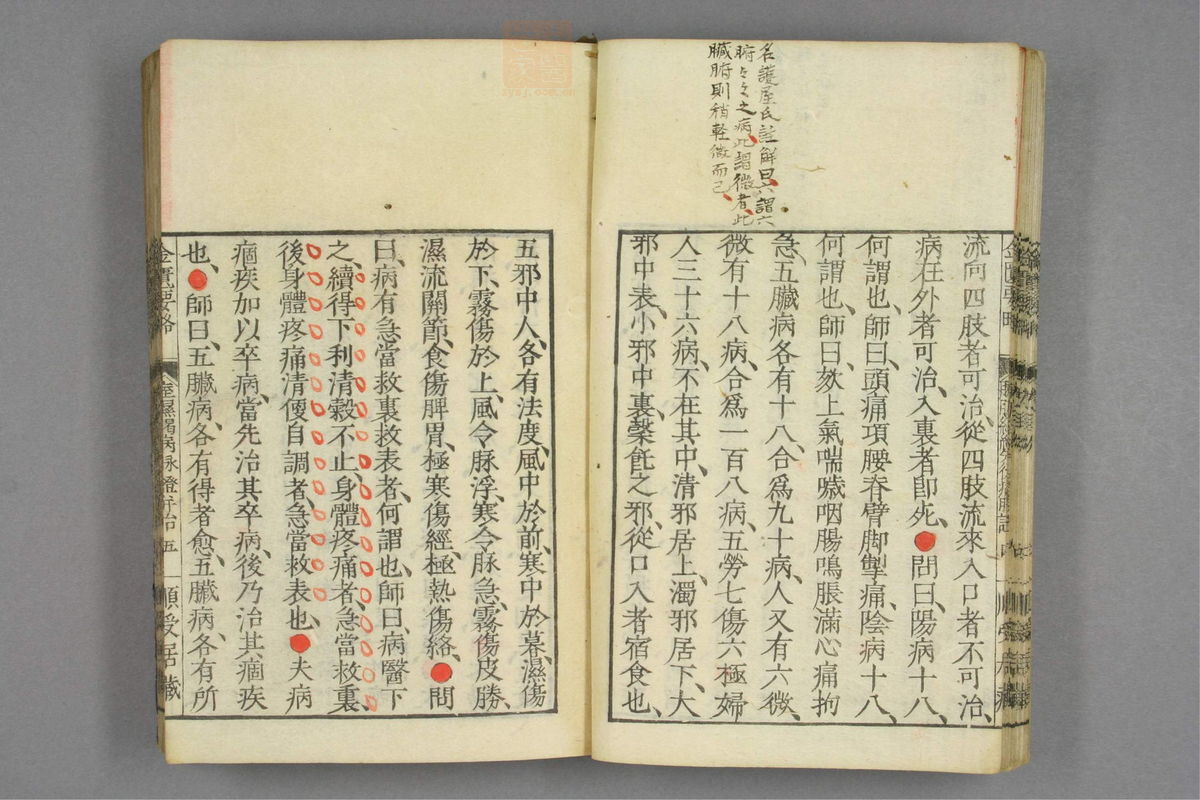 名護屋氏註解曰六謂六
腑々々之病此謂微者此
臟腑則稍輕微而已
流向四肢者可治從四肢流來入口者不可治
病在外者可治入裏者卽死●問曰陽病十八
何謂也師曰頭痛項腰脊臂脚掣痛陰病十八
何謂也師曰欬上氣喘噦咽腸鳴脹滿心痛拘
急五臟病各有十八合爲九十病人又有六微
微有十八病合爲一百八病五勞七傷六極婦
人三十六病不在其中淸邪居上濁邪居下大
邪中表小邪中裏䅽飥之邪從口入者宿食也
五邪中人各有法度風中於前寒中於暮濕傷
於下霧傷於上風令脉浮寒令脉急霧傷皮腠
濕流關節食傷脾胃極寒傷經極熱傷絡●問
曰病有急當救裏救表者何謂也師曰病醫下
之續得下利淸穀不止身體疼痛者急當救裏
後身體疼痛淸便自調者急當救表也●夫病
痼疾加以卒病當先治其卒病後乃治其痼疾
也●師曰五臟病各有得者愈五臟病各有所
金匱要略
痙濕暍病脉證并治 五
順受居藏